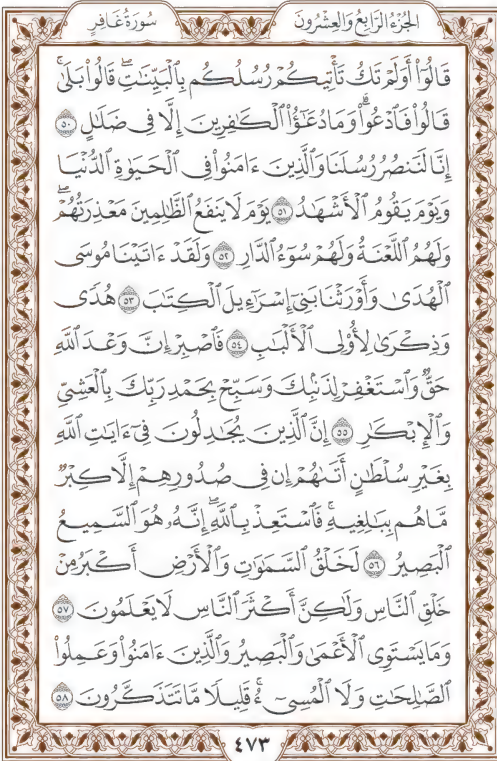 الجُزْءُ الرَّابِعُ وَالعِشْرُونَ
سُورَةُ غَافِرٍ
قَالُوٓا۟ أَوَلَمْ تَكُ تَأْتِيكُمْ رُسُلُكُم بِٱلْبَيِّنَـٰتِۖ قَالُوا۟ بَلَىٰۚ
قَالُوا۟ فَٱدْعُوا۟ۗ وَمَا دُعَـٰٓؤُا۟ ٱلْكَـٰفِرِينَ إِلَّا فِى ضَلَـٰلٍ ٥٠
إِنَّا لَنَنصُرُ رُسُلَنَا وَٱلَّذِينَ ءَامَنُوا۟ فِى ٱلْحَيَوٰةِ ٱلدُّنْيَا
وَيَوْمَ يَقُومُ ٱلْأَشْهَـٰدُ ٥١ يَوْمَ لَا يَنفَعُ ٱلظَّـٰلِمِينَ مَعْذِرَتُهُمْۖ
وَلَهُمُ ٱللَّعْنَةُ وَلَهُمْ سُوٓءُ ٱلدَّارِ ٥٢ وَلَقَدْ ءَاتَيْنَا مُوسَى
ٱلْهُدَىٰ وَأَوْرَثْنَا بَنِىٓ إِسْرَٰٓءِيلَ ٱلْكِتَـٰبَ ٥٣ هُدًى
وَذِكْرَىٰ لِأُو۟لِى ٱلْأَلْبَـٰبِ ٥٤ فَٱصْبِرْ إِنَّ وَعْدَ ٱللَّهِ
حَقٌّ وَٱسْتَغْفِرْ لِذَنۢبِكَ وَسَبِّحْ بِحَمْدِ رَبِّكَ بِٱلْعَشِىِّ
وَٱلْإِبْكَـٰرِ ٥٥ إِنَّ ٱلَّذِينَ يُجَـٰدِلُونَ فِىٓ ءَايَـٰتِ ٱللَّهِ
بِغَيْرِ سُلْطَـٰنٍ أَتَىٰهُمْ إِن فِى صُدُورِهِمْ إِلَّا كِبْرٌ
مَّا هُم بِبَـٰلِغِيهِۚ فَٱسْتَعِذْ بِٱللَّهِۖ إِنَّهُۥ هُوَ ٱلسَّمِيعُ
ٱلْبَصِيرُ ٥٦ لَخَلْقُ ٱلسَّمَـٰوَٰتِ وَٱلْأَرْضِ أَكْبَرُ مِنْ
خَلْقِ ٱلنَّاسِ وَلَـٰكِنَّ أَكْثَرَ ٱلنَّاسِ لَا يَعْلَمُونَ ٥٧
وَمَا يَسْتَوِى ٱلْأَعْمَىٰ وَٱلْبَصِيرُ وَٱلَّذِينَ ءَامَنُوا۟ وَعَمِلُوا۟
ٱلصَّـٰلِحَـٰتِ وَلَا ٱلْمُسِىٓءُۚ قَلِيلًا مَّا تَتَذَكَّرُونَ ٥٨
٤٧٣